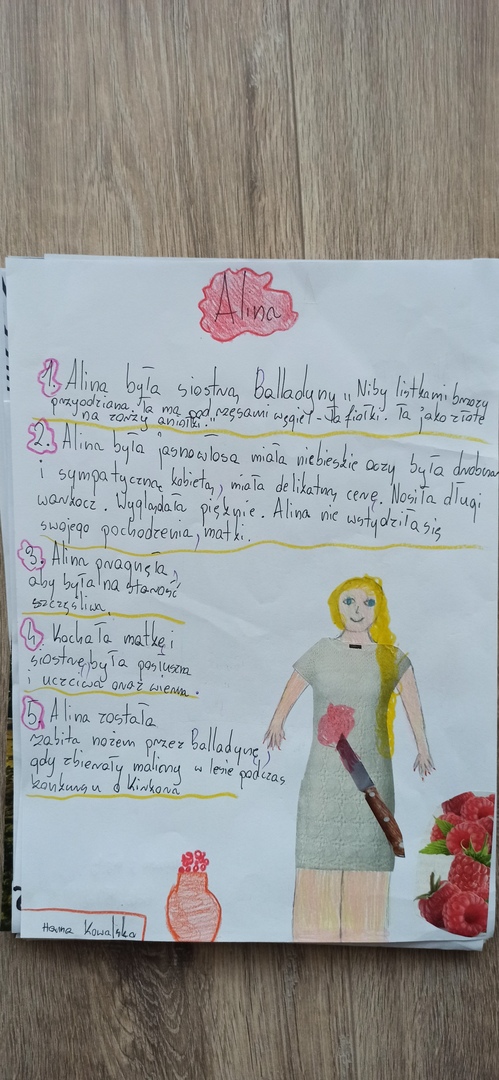 Alina
1. Alina była siostrą Balladyny „Niby listkami brzozy
przyodziana. Ta ma pod rzęsami węgiel - Ta fiołki. Ta jako złote
na zorzy aniołki."
2. Alina była jasnowłosa miała niebieskie oczy była drobną
i sympatyczną kobietą, miała delikatną cerę. Nosiła długi
warkocz. Wyglądała pięknie. Alina nie wstydziła się
swojego pochodzenia, matki.
3. Alina pragnęła,
aby była na starość
szczęśliwa.
4. Kochała matkę i
siostrę, była posłuszna
i uczciwa oraz wierna.
5. Alina została
zabita nożem przez Balladynę,
gdy zbierały maliny w lesie podczas
konkursu o Kirkora
Hanna Kowalska